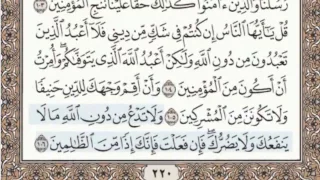 رُسُلَنَا وَالَّذِينَ ءَامَنُوا كَذَٰلِكَ حَقًّا عَلَيْنَا نُنجِ الْمُؤْمِنِينَ ١٠٣
قُلْ يَٰٓأَيُّهَا النَّاسُ إِن كُنتُمْ فِي شَكٍّ مِّن دِينِي فَلَآ أَعْبُدُ الَّذِينَ
تَعْبُدُونَ مِن دُونِ اللَّهِ وَلَٰكِنْ أَعْبُدُ اللَّهَ الَّذِي يَتَوَفَّىٰكُمْ وَأُمِرْتُ
أَنْ أَكُونَ مِنَ الْمُؤْمِنِينَ ١٠٤ وَأَنْ أَقِمْ وَجْهَكَ لِلدِّينِ حَنِيفًا
وَلَا تَكُونَنَّ مِنَ الْمُشْرِكِينَ ١٠٥ وَلَا تَدْعُ مِن دُونِ اللَّهِ مَا لَا
يَنفَعُكَ وَلَا يَضُرُّكَ فَإِن فَعَلْتَ فَإِنَّكَ إِذًا مِّنَ الظَّٰلِمِينَ ١٠٦
٢٢٠